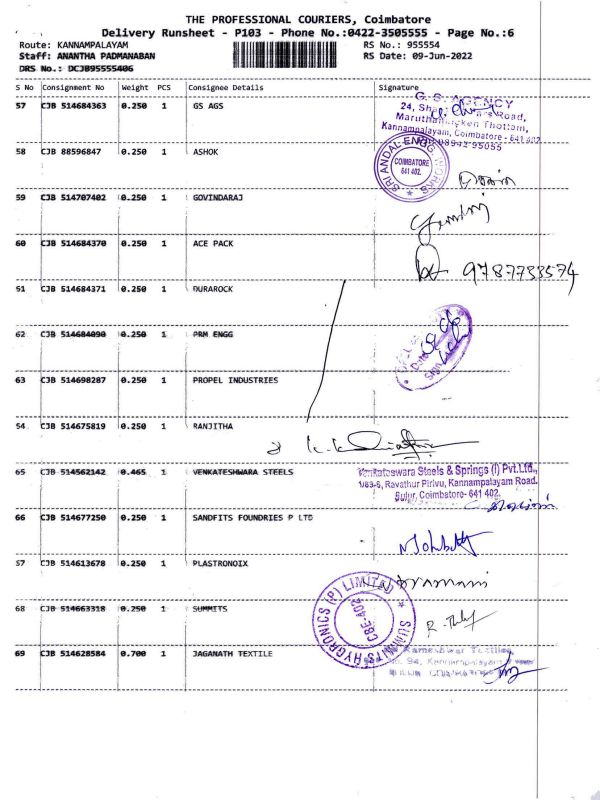 THE PROFESSIONAL COURIERS, Coimbatore
Delivery Runsheet - P103 - Phone No.:0422-3505555 - Page No.:6
Route: KANNAMPALAYAM RS No.: 955554
Staff: ANANTHA PADMANABAN RS Date: 09-Jun-2022
DRS No.: DCJB95555406
S No Consignment No Weight PCS Consignee Details Signature
57 CJB 514684363 0.250 1 GS AGS
G. S. AGENCY
24, Road,
Thottam,
Kannampalayam, Coimbatore - 641 402
58 CJB 88596847 0.250 1 ASHOK
SRI ANDAL ENGG WORKS
COIMBATORE
641 402.
59 CJB 514707402 0.250 1 GOVINDARAJ
60 CJB 514684370 0.250 1 ACE PACK
9787733574
51 CJB 514684371 0.250 1 DURAROCK
62 CJB 514684090 0.250 1 PRM ENGG
63 CJB 514698287 0.250 1 PROPEL INDUSTRIES
54 CJB 514675819 0.250 1 RANJITHA
65 CJB 514562142 0.465 1 VENKATESHWARA STEELS
Venkateswara Steels & Springs (I) Pvt.Ltd.,
1/83-6, Ravathur Pirivu, Kannampalayam Road.
Sulur, Coimbatore- 641 402.
66 CJB 514677250 0.250 1 SANDFITS FOUNDRIES P LTD
57 CJB 514613678 0.250 1 PLASTRONOIX
68 CJB 514663318 0.250 1 SUMMITS
SUMMITS HYGRONICS (P) LIMITED
CBE-402
69 CJB 514628584 0.700 1 JAGANATH TEXTILE